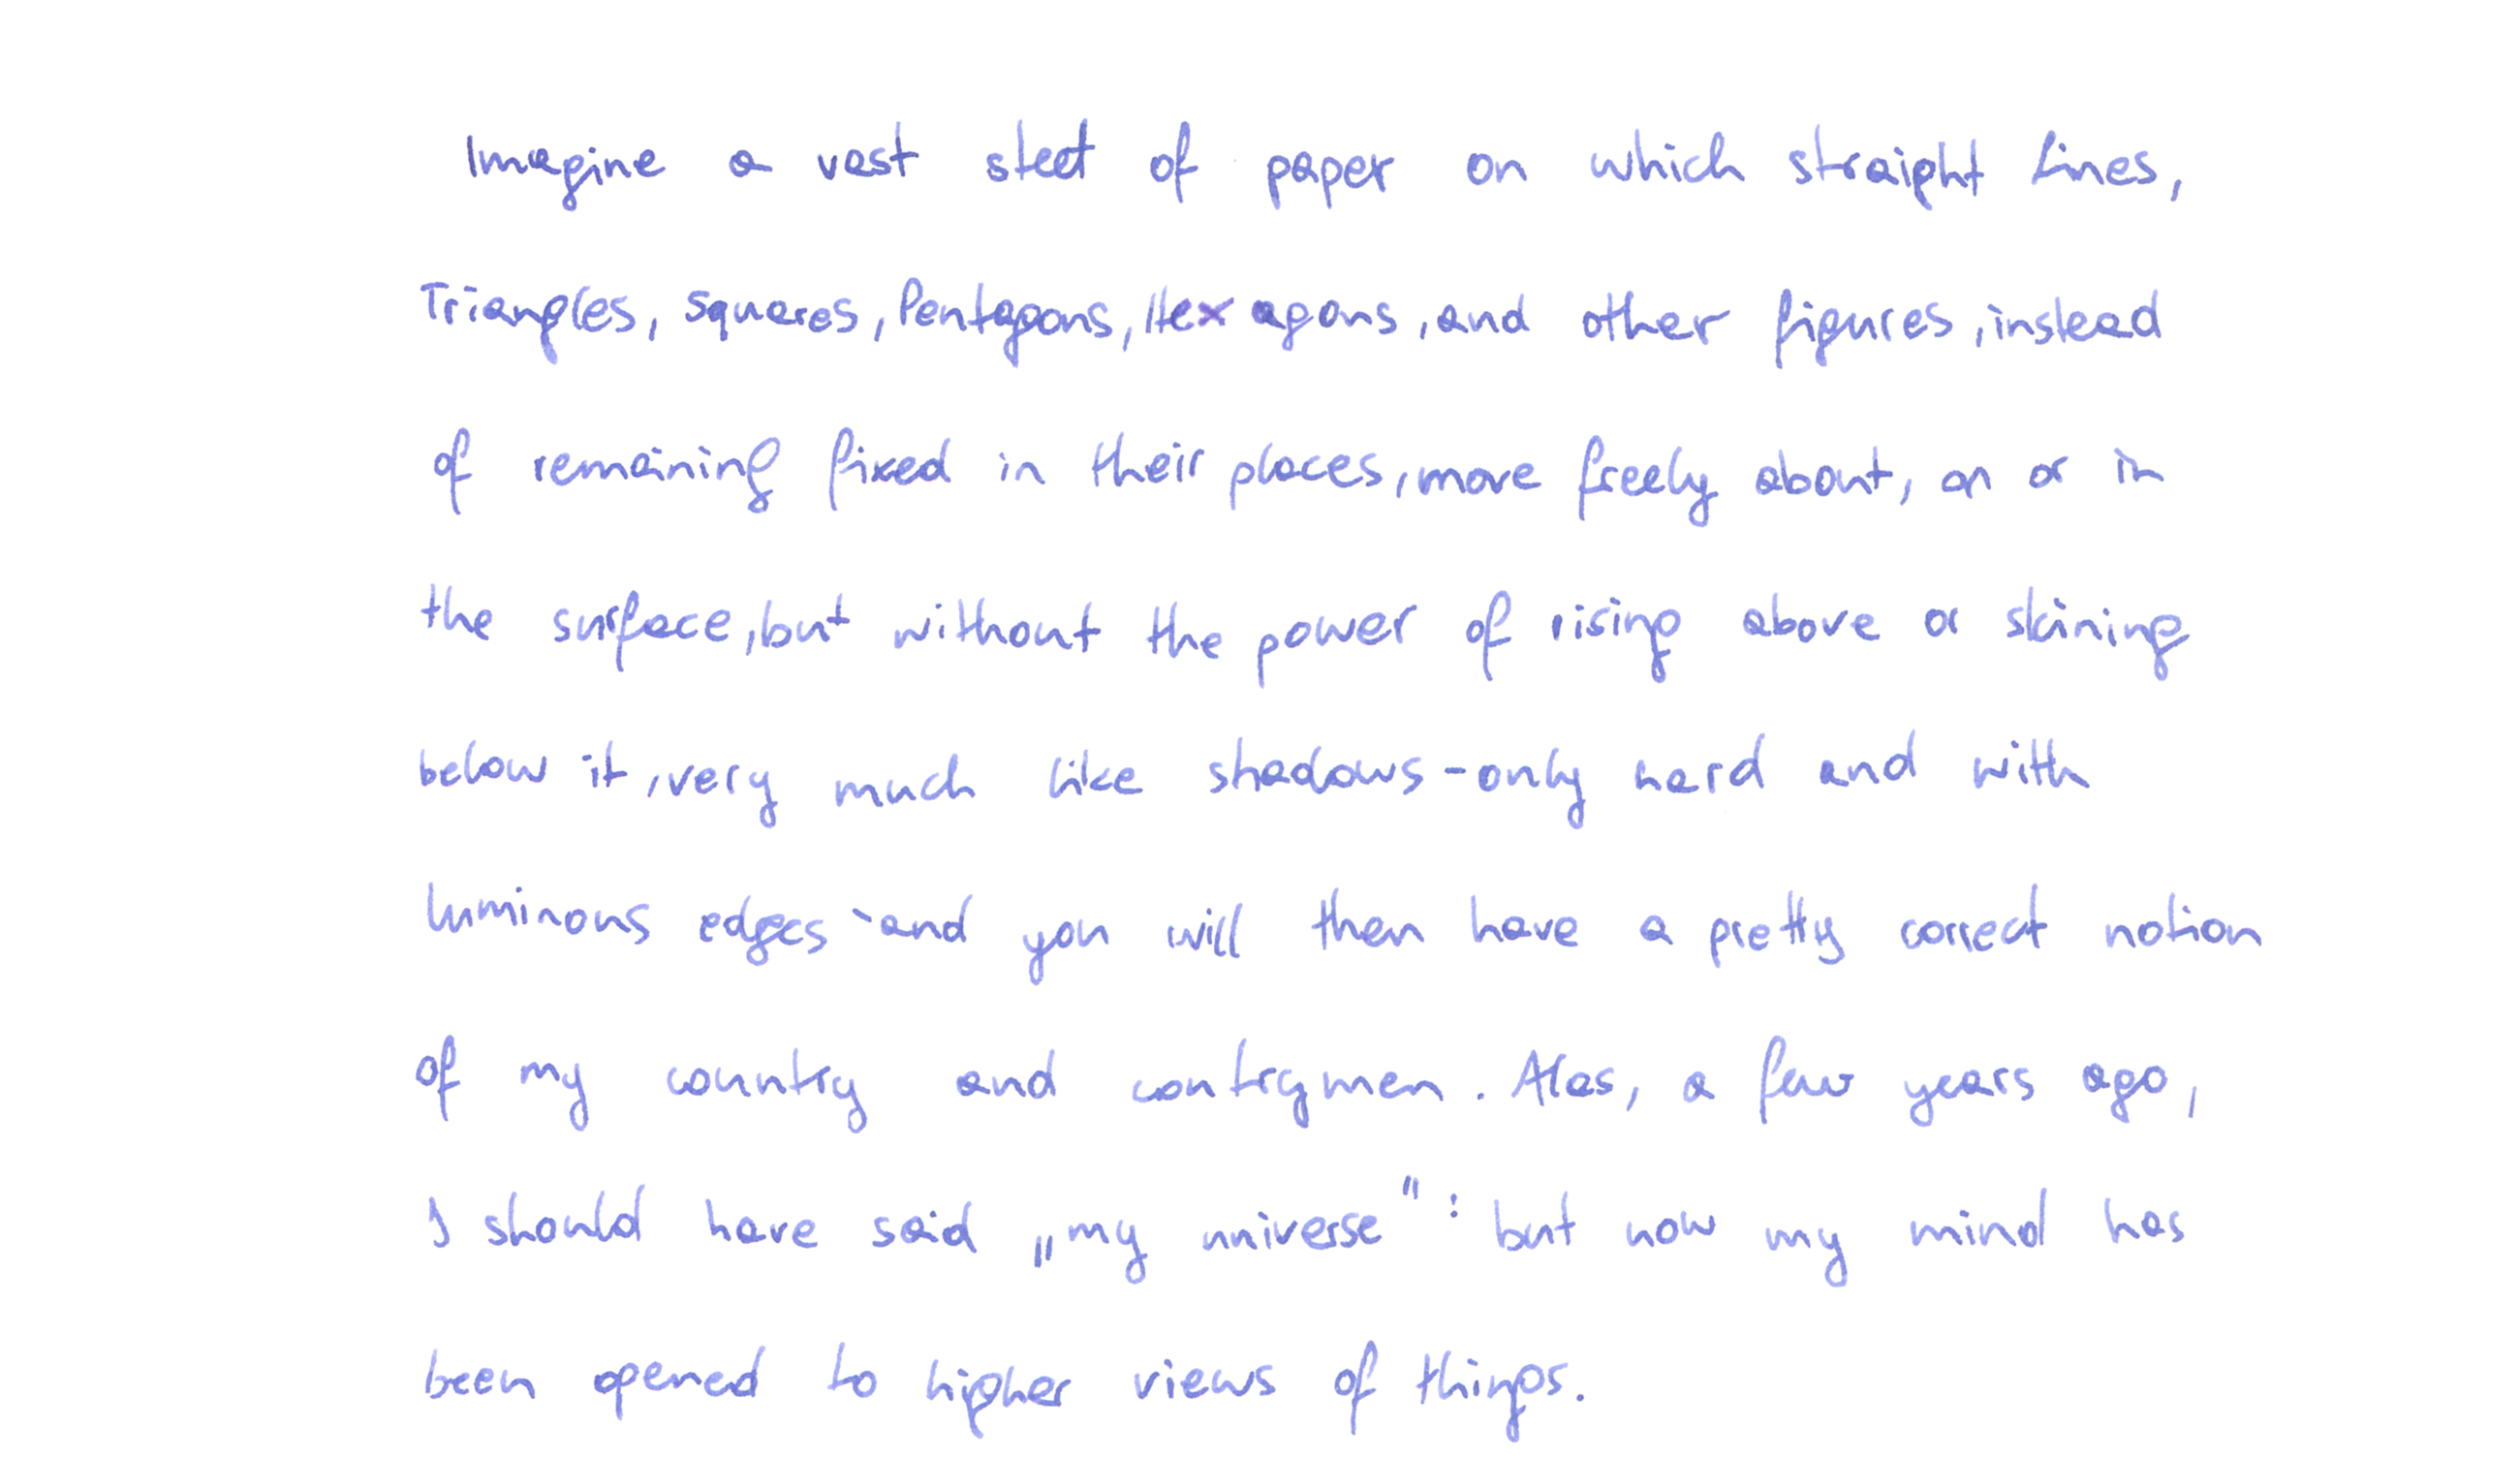 Imagine a vast steet of paper on which straight Lines,
Triangles, Squares, Pentagons, Hexagons, and other figures, instead
of remaining fixed in their places, move freely about, on or in
the surface, but without the power of rising above or skining
below it, very much like shadows - only hard and with
luminous edges - and you will then have a pretty correct notion
of my country and contrymen. Alas, a few years ago,
I should have said „my universe": but now my mind has
been opened to higher views of things.